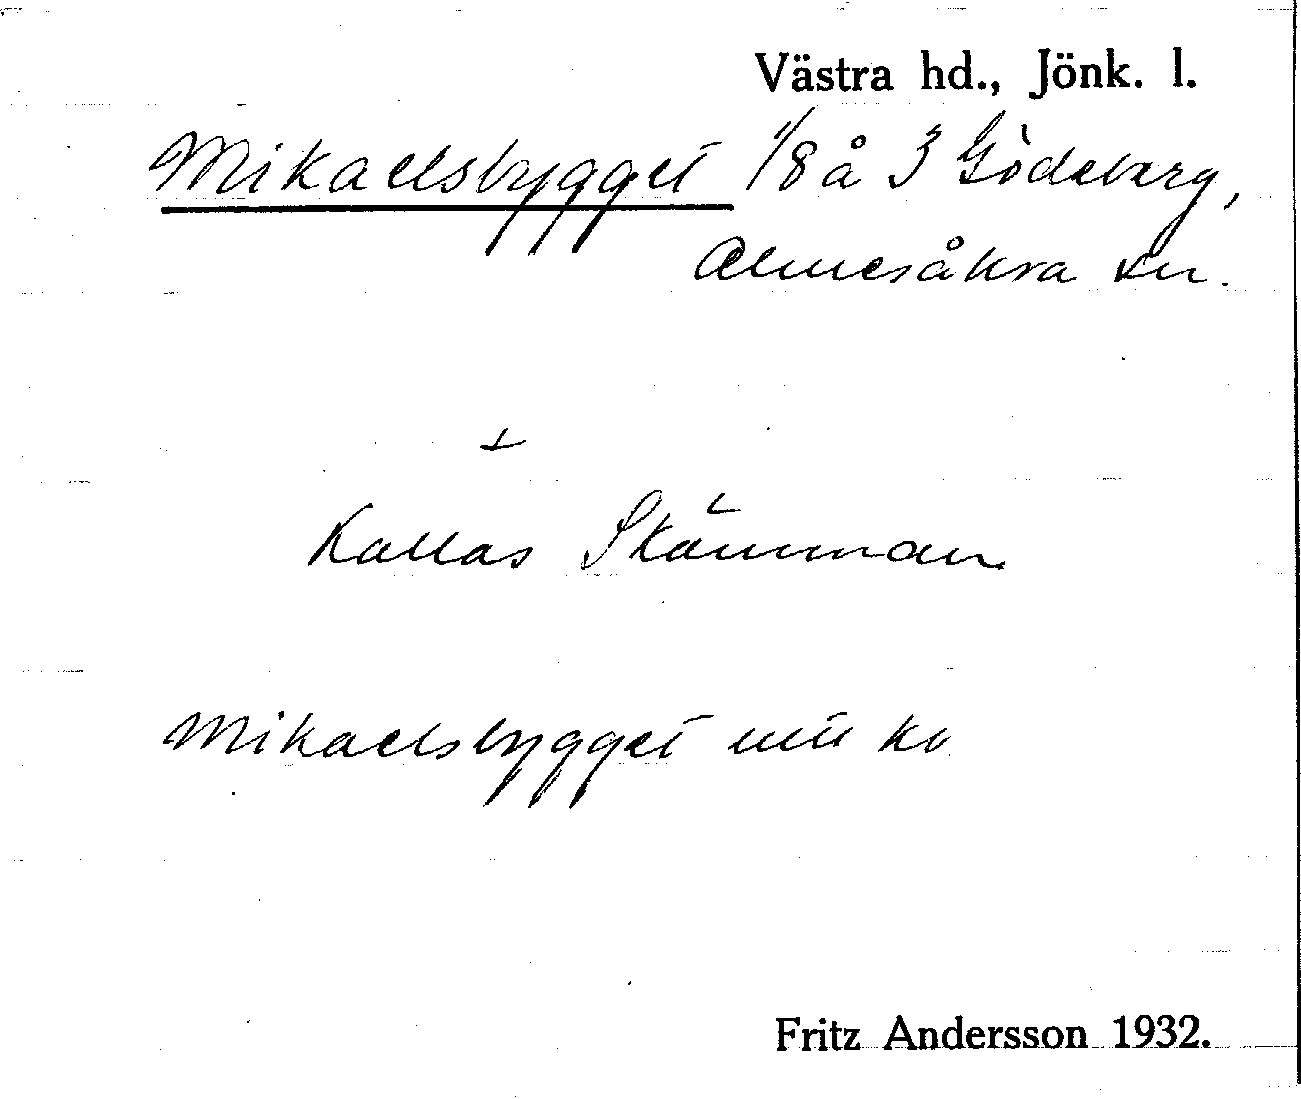 Västra hd., Jönk. l.
Mikaelsbygget 1/8 å 3 Gödeberg,
Almesåkra sn.
Kallas Skämman
Mikaelsbygget
Fritz Andersson 1932.